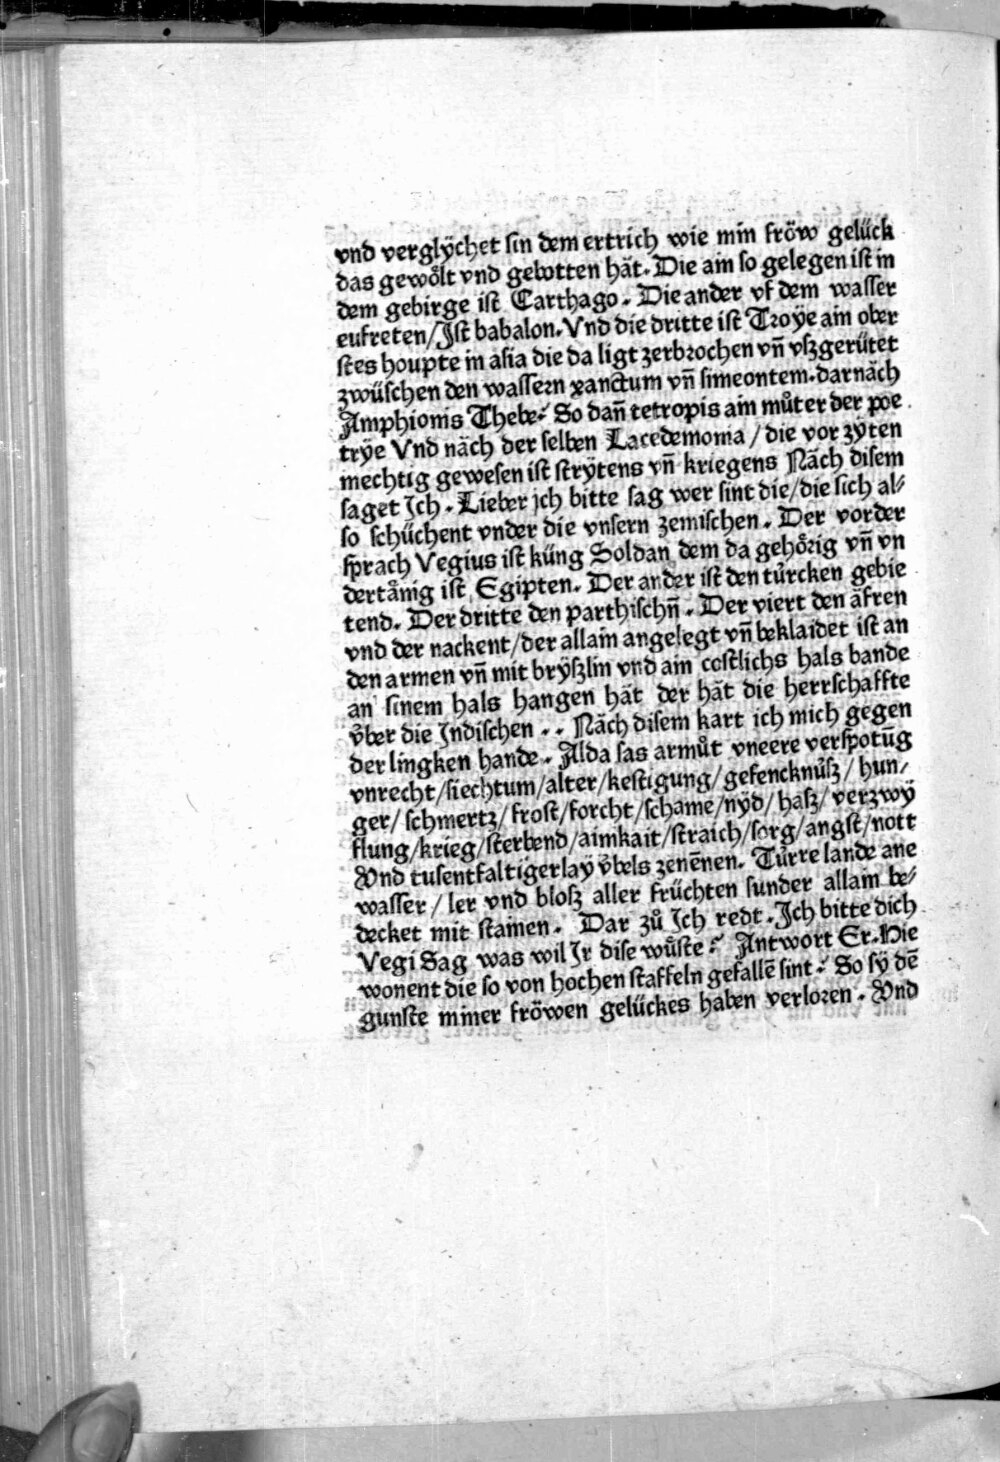 vnd verglÿchet sin dem ertrich wie min fröw gelück
das gewoͤlt vnd gebotten hät. Die ain so gelegen ist in
dem gebirge ist Carthago. Die ander vf dem wasser
eufreten/Jst babalon. Vnd die dritte ist Troÿe ain ober
stes houpte in asia die da ligt zerbrochen vn̄ vszgerütet
zwüschen den wassern xanctum vn̄ simeontem. darnäch
Amphionis Thebe. So dan̄ tetropis ain muͦter der poe
trÿe Vnd näch der selben Lacedemonia / die vor zÿten
mechtig gewesen ist strÿtens vn̄ kriegens Näch disem
saget Jch. Lieber jch bitte sag wer sint die/die sich al⸗
so schüchent vnder die vnsern zemischen. Der vorder
sprach Vegius ist küng Soldan dem da gehoͤrig vn̄ vn
dertaͤnig ist Egipten. Der ander ist den türcken gebie
tend. Der dritte den parthischn̄. Der viert den äfren
vnd der nackent/der allain angelegt vn̄ beklaidet ist an
den armen vn̄ mit brÿszlin vnd ain costlichs hals bande
an sinem hals hangen hät der hät die herrschaffte
v̈ber die Jndischen.. Näch disem kart ich mich gegen
der lingken hande. Alda sas armuͦt vneere verspotūg
vnrecht/siechtum/alter/kestigung/gefencknüsz/hun⸗
ger/schmertz/frost/forcht/schame/nÿd/hasz/verzwÿ
flung/krieg/sterbend/ainikait/straich/sorg/angst/nott
Vnd tusentfaltigerlaÿ v̈bels zenēnen. Türre lande ane
wasser / ler vnd blosz aller früchten sunder allain be⸗
decket mit stainen. Dar zuͦ Jch redt. Jch bitte dich
Vegi Sag was wil Jr dise wuͤste? Antwort Er. Hie
wonent die so von hochen staffeln gefallē sint? So sÿ dē
gunste miner fröwen gelückes haben verloren. Vnd